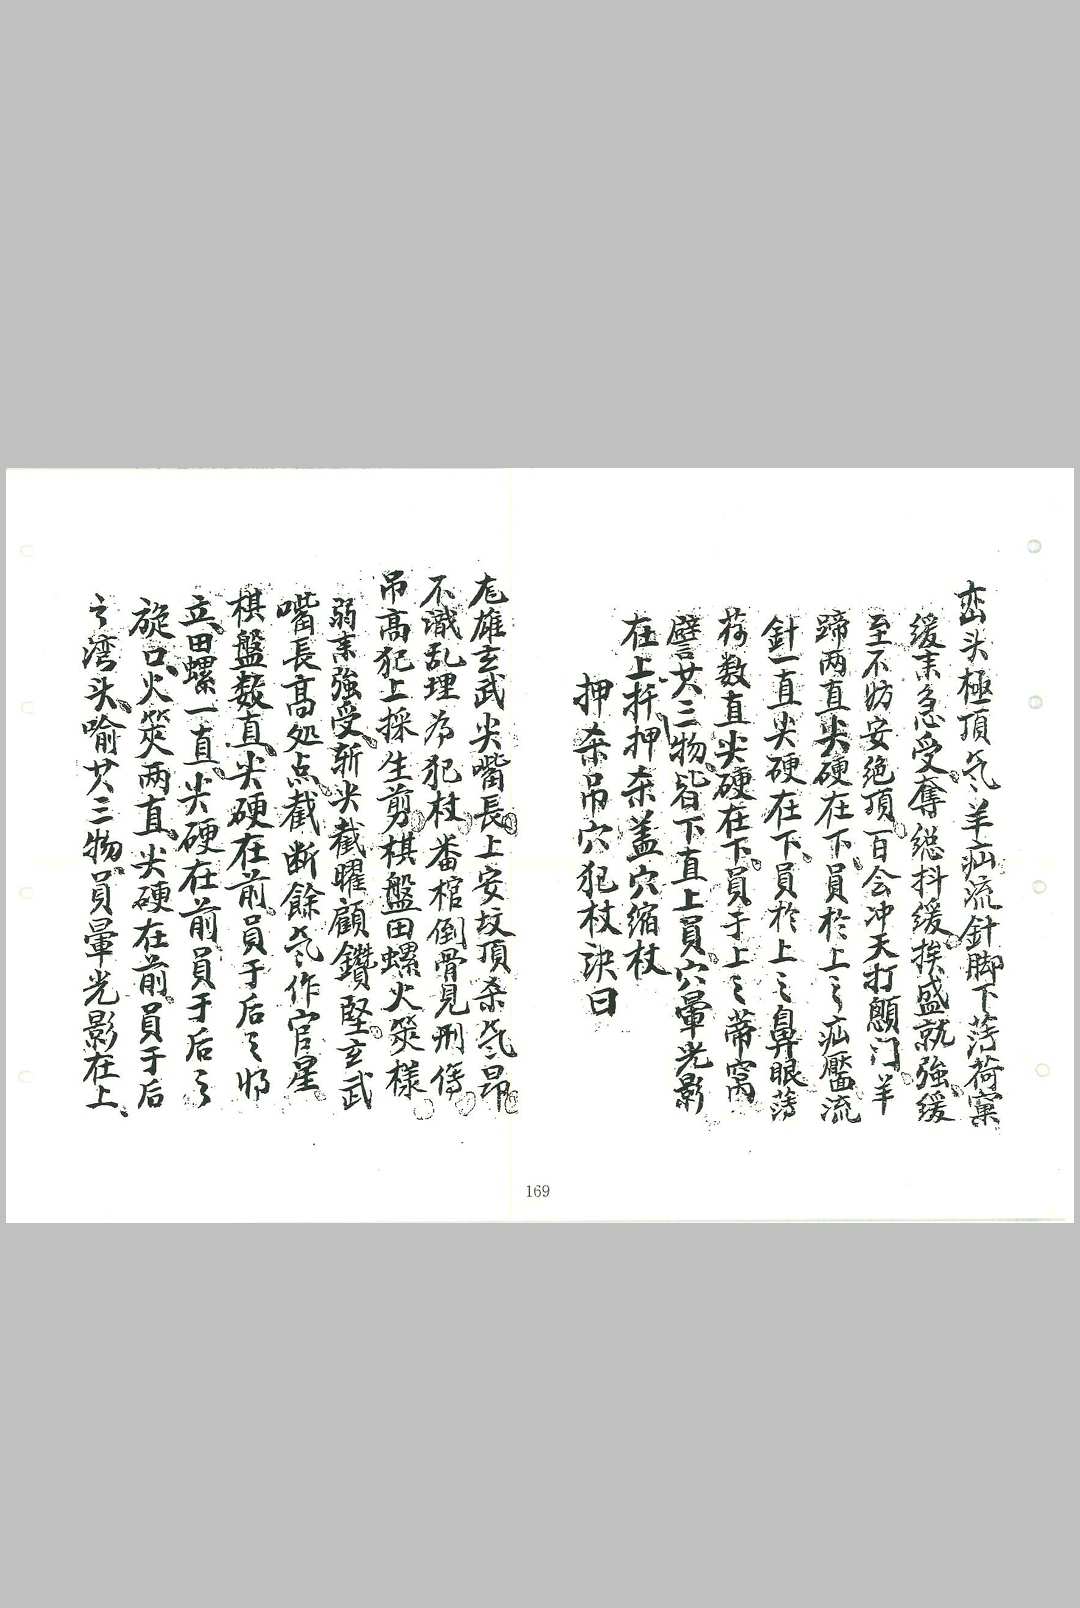 峦头極頂炁羊疝流針脚下薄荷窠
缓来急受奪総抖缓挨盛就強缓
至不妨安绝頂百会冲天打顖门羊
蹄两直尖硬在下員於上之疝靨流
針一直尖硬在下員於上之鼻眼薄
荷数直尖硬在下員手上之蒂窩
譬廿三物皆下直上員穴暈光影
在上扦押杀盖穴缩杖
押杀吊穴犯杖決曰
尨雄玄武尖嘴長上安坟頂杀炁昂
不識乱埋為犯杖番棺倒骨見刑傷
吊高犯上採生剪棋盤田螺火筴樣
弱来強受斩尖截曜顧鑽堅玄武
嘴長高処点截断餘炁作官星
棋盤数直尖硬在前員于后之將
立田螺一直尖硬在前員于后之
旋口火筴两直尖硬在前員于后
之湾头喻廿三物員暈光影在上
169